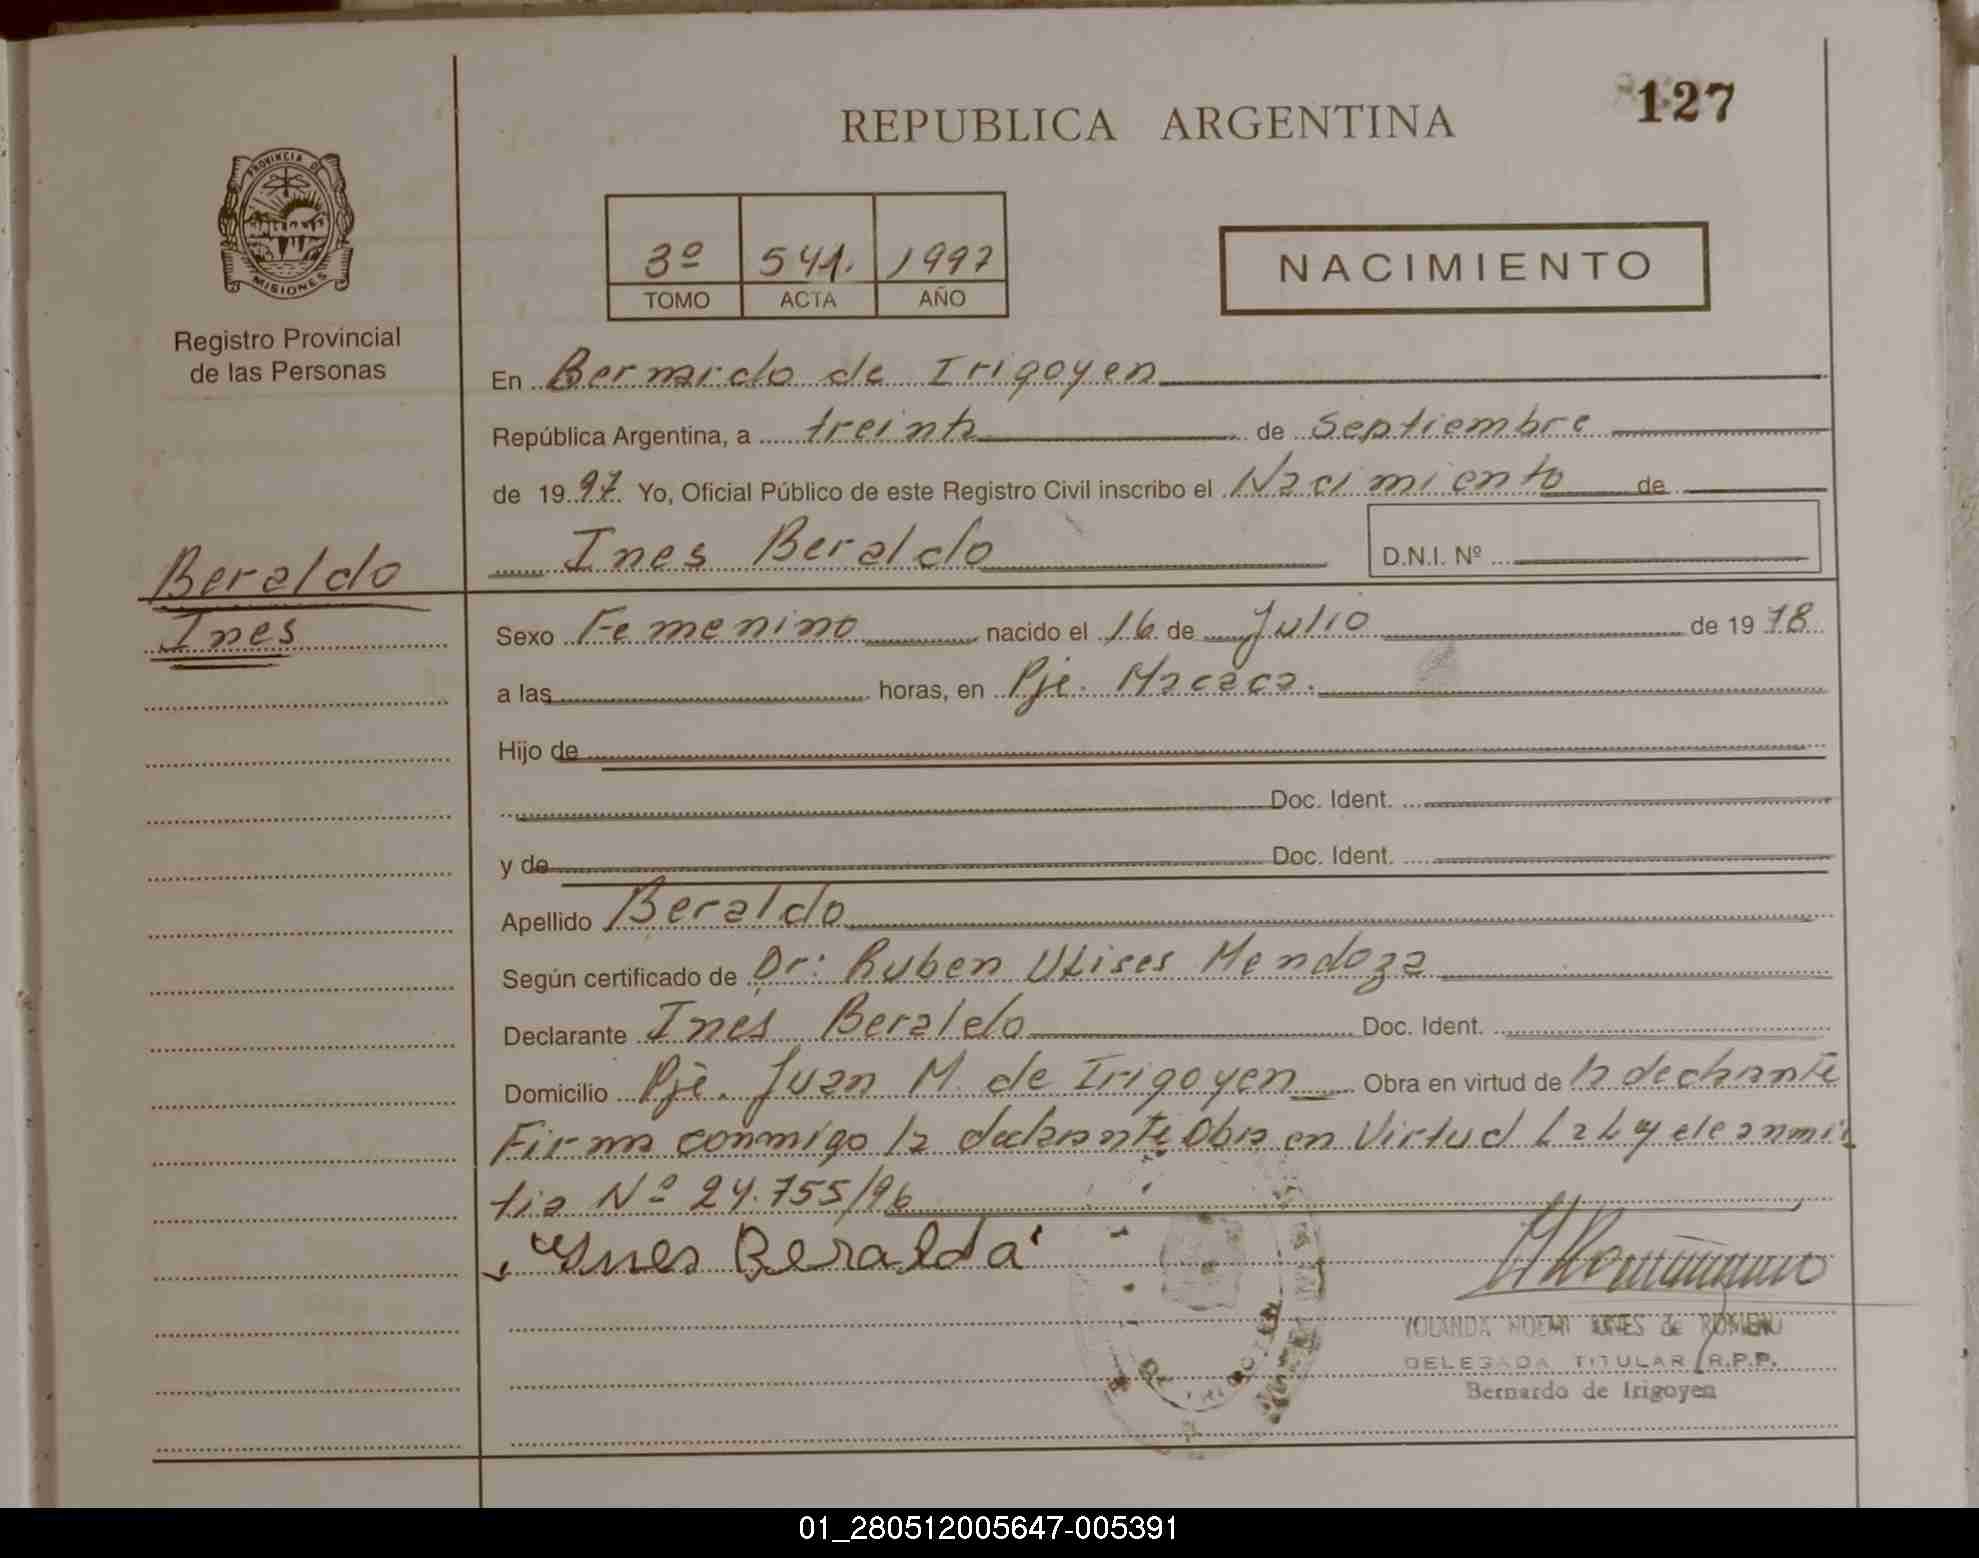 127
REPUBLICA ARGENTINA
PROVINCIA DE
MISIONES
Registro Provincial
de las Personas
3º 541. 1997
TOMO ACTA AÑO
NACIMIENTO
En Bernardo de Irigoyen
República Argentina, a treinta de Septiembre
de 1997 Yo, Oficial Público de este Registro Civil inscribo el Nacimiento de
Ines Beraldo D.N.I. Nº
Beraldo
Ines
Sexo Femenino nacido el 16 de Julio de 1978
a las horas, en Pje. Macaca.
Hijo de
Doc. Ident.
y de Doc. Ident.
Apellido Beraldo
Según certificado de Dr: Ruben Ulises Mendoza
Declarante Ines Beraldo Doc. Ident.
Domicilio Pje. Juan M. de Irigoyen Obra en virtud de la declarante
Firma conmigo la declarante Obra en Virtud La Ley de anmis
tia Nº 24.755/96
"Ines Beralda"
YOLANDA NOEMI de ROMERO
DELEGADA TITULAR R.P.P.
Bernardo de Irigoyen
01_280512005647-005391